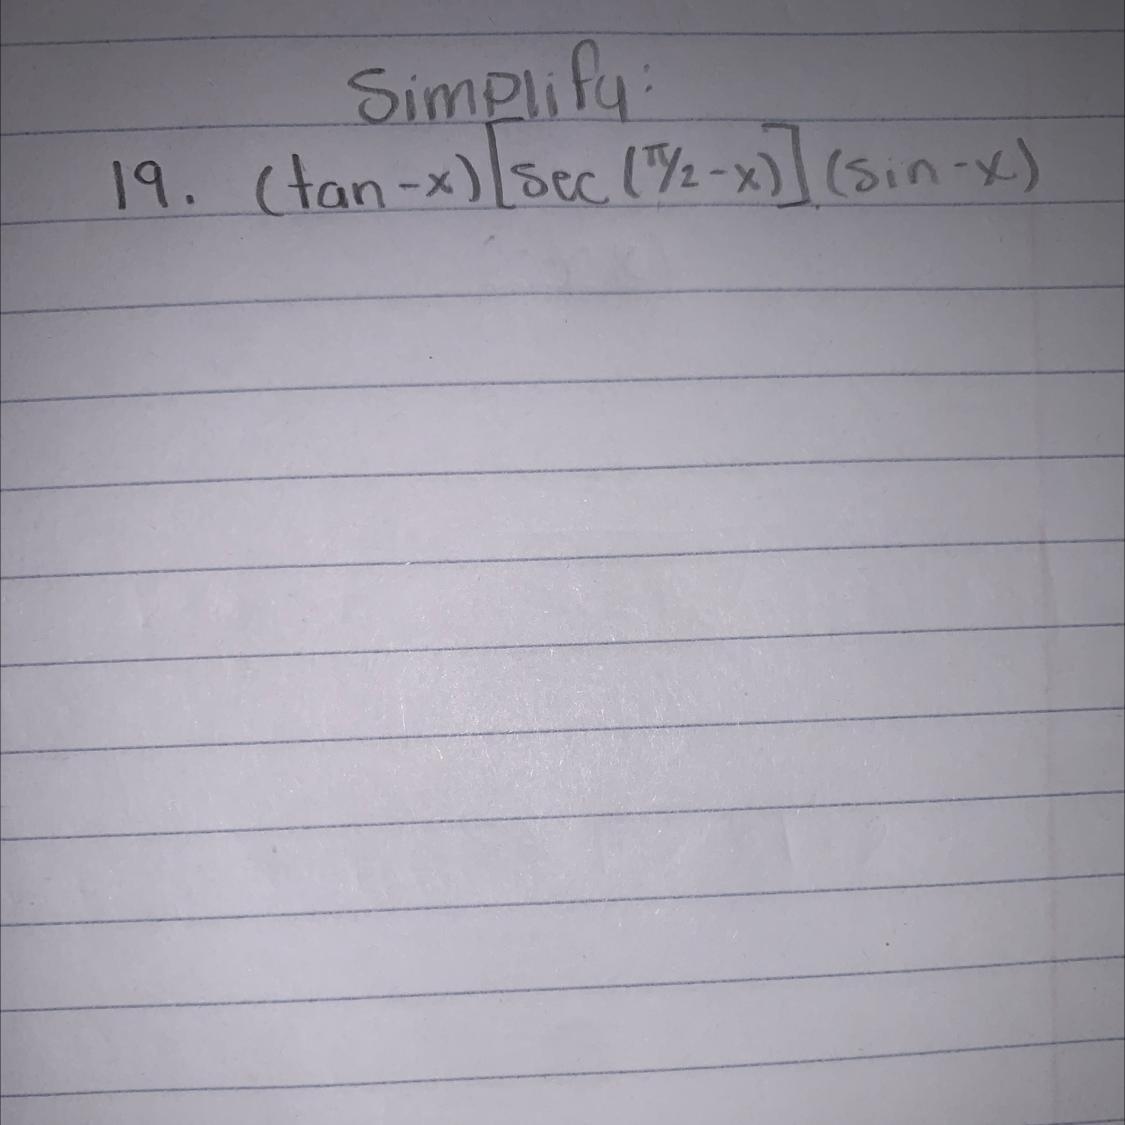 Simplify:
19. (tan-x)[sec(π/2-x)](sin-x)